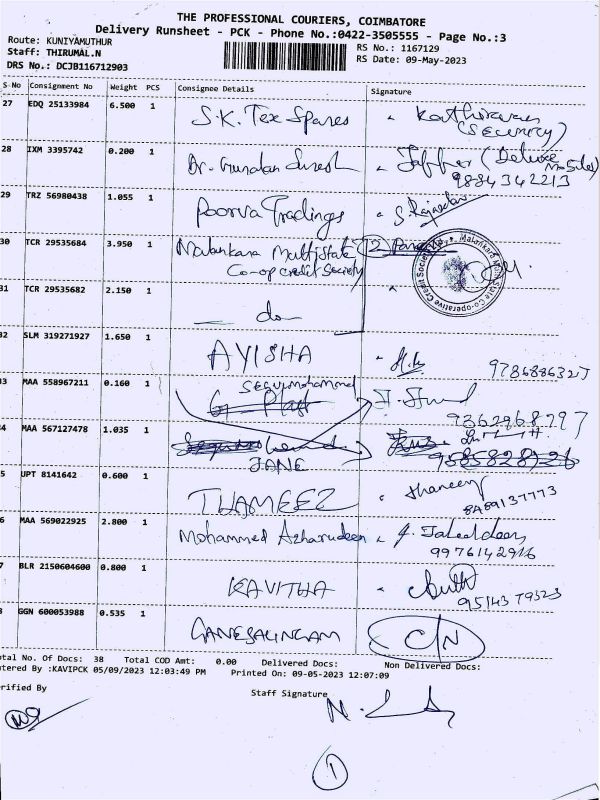 THE PROFESSIONAL COURIERS, COIMBATORE
Delivery Runsheet - PCK - Phone No.:0422-3505555 - Page No.:3
Route: KUNIYAMUTHUR
RS No.: 1167129
Staff: THIRUMAL.N
RS Date: 09-May-2023
DRS No.: DCJB116712903
S No Consignment No Weight PCS Consignee Details Signature
27 EDQ 25133984 6.500 1 S.K. Tex Spares
(Security)
28 IXM 3395742 0.200 1 Dr. Suresh Jaffer (Deluxe
9884342213
29 TRZ 56980438 1.055 1 Poorva Tradings S. Rajendran
30 TCR 29535684 3.950 1 Malankara Multistate
Co-op credit Society
31 TCR 29535682 2.150 1 do
32 SLM 319271927 1.650 1 AYISHA
33 MAA 558967211 0.160 1 SEGUMOHAMMED
9362968797
4 MAA 567127478 1.035 1
JANE
5 UPT 8141642 0.600 1 THAMEEZ thaneez
8489137773
6 MAA 569022925 2.800 1 Mohammed Azharudeen J. Jaleeldeen
9976142916
7 BLR 2150604600 0.800 1 KAVITHA
8 GGN 600053988 0.535 1 GANESALINGAM C/N
otal No. Of Docs: 38 Total COD Amt: 0.00 Delivered Docs: Non Delivered Docs:
ntered By :KAVIPCK 05/09/2023 12:03:49 PM Printed On: 09-05-2023 12:07:09
erified By
Staff Signature
1